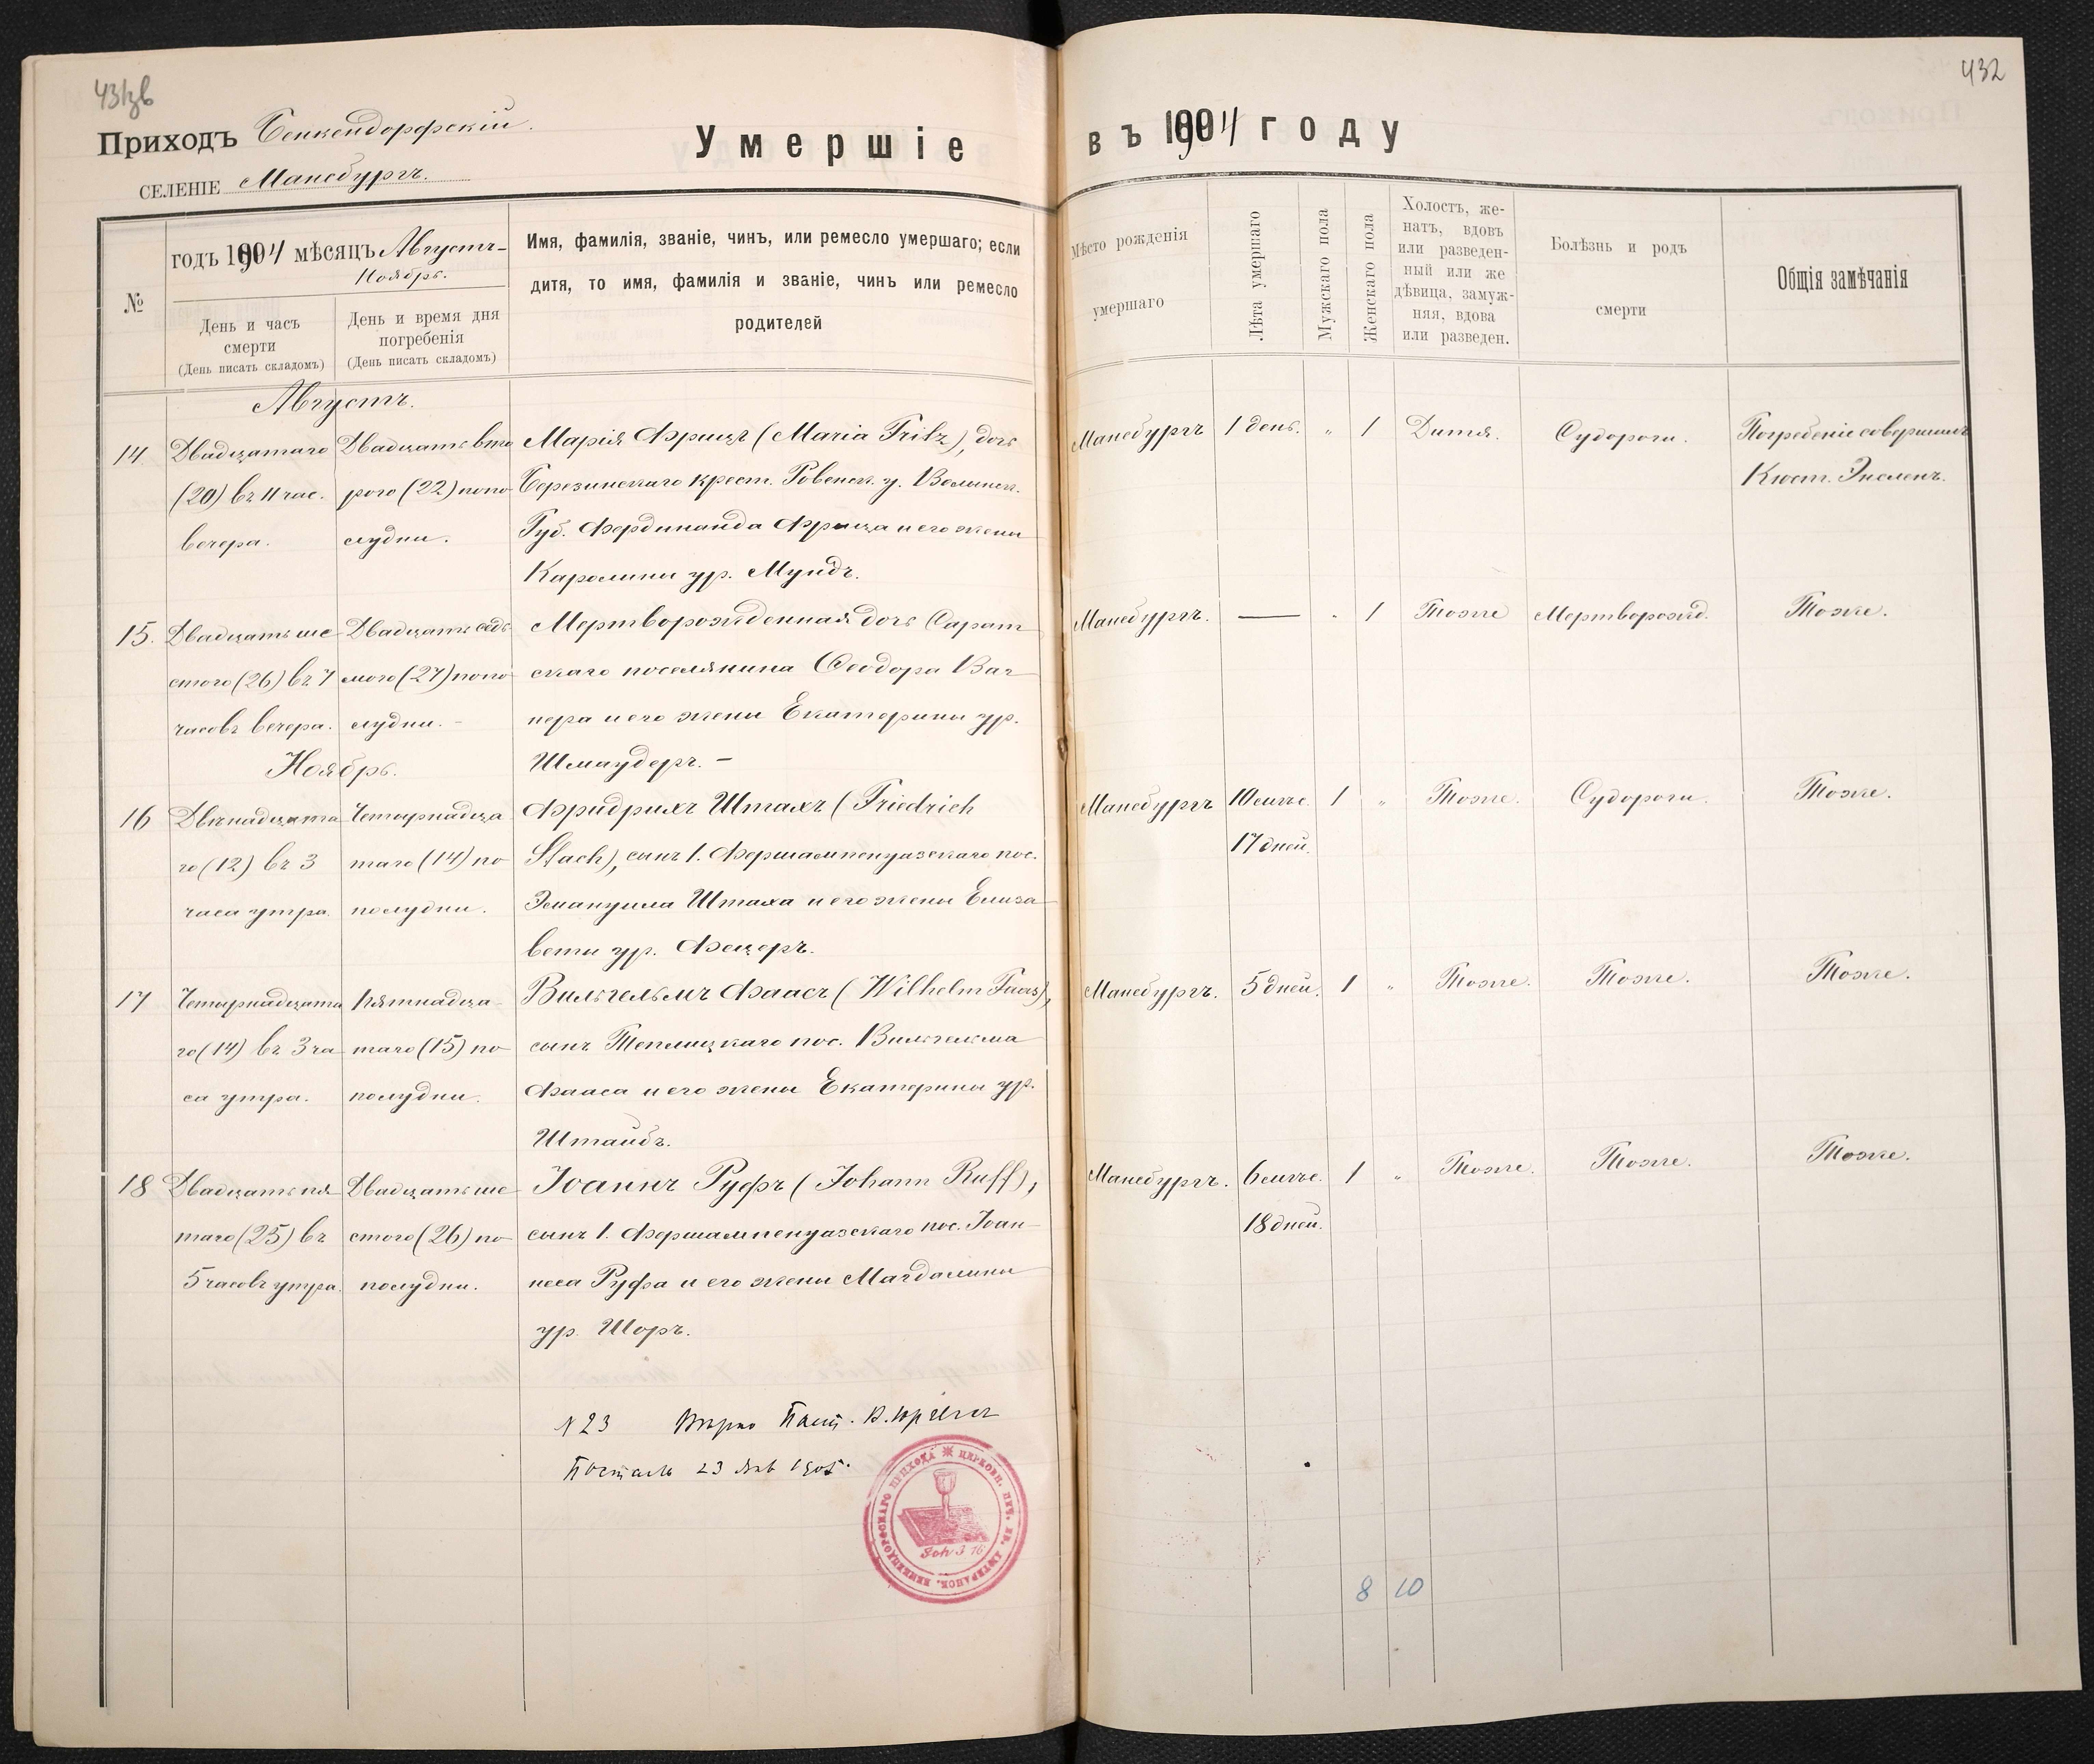 431зв
432
Приходъ Бенкендорфскій.
СЕЛЕНІЕ Мансбургъ.
Умершіе
въ 1904 году
№
годъ 1904 мѣсяцъ Августъ-
Ноябрь.
День и часъ
смерти
(День писать складомъ)
День и время дня
погребенія
(День писать складомъ)
Имя, фамилія, званіе, чинъ, или ремесло умершаго; если
дитя, то имя, фамилія и званіе, чинъ или ремесло
родителей
Мѣсто рожденія
умершаго
Лѣта умершаго
Мужскаго пола
Женскаго пола
Холостъ, же-
натъ, вдовъ
или разведен-
ный или же
дѣвица, замуж-
няя, вдова
или разведен.
Болѣзнь и родъ
смерти
Общія замѣчанія
Августъ.
14
Двадцатаго
(20) въ 11 час.
вечера.
Двадцать вто
рого (22) попо
лудни.
Марія Фрицъ (Maria Fritz), дочь
Березинскаго крест. Ровенск. у. Волынск.
Губ. Фердинанда Фрица и его жены
Каролины ур. Мундъ.
Мансбургъ
1 день.
"
1
Дитя.
Судороги.
Погребеніе совершилъ
Кюст. Энсленъ.
15.
Двадцать ше
стого (26) въ 7
часовъ вечера.
Двадцать седь
мого (27) попо
лудни. -
Мертворожденная дочь Сарат
скаго поселянина Ѳеодора Ваг
нера и его жены Екатерины ур.
Шмаудеръ. -
Мансбургъ.
—
"
1
Тоже
Мертворожд.
Тоже.
Ноябрь.
16
Двѣнадцата
го (12) въ 3
часа утра.
Четырнадца
таго (14) по
полудни.
Фридрихъ Штахъ (Friedrich
Stach), сынъ 1. Фершампенуазскаго пос.
Эмануила Штаха и его жены Елиза
веты ур. Фецеръ.
Мансбургъ
10 мѣс.
17 дней.
1
"
Тоже.
Судороги.
Тоже.
17
Четырнадцата
го (14) въ 3 ча
са утра.
Пятнадца
таго (15) по
полудни.
Вильгельмъ Фаасъ (Wilhelm Faas),
сынъ Теплицкаго пос. Вильгельма
Фааса и его жены Екатерины ур.
Штайбъ.
Мансбургъ.
5 дней.
1
"
Тоже.
Тоже.
Тоже.
18
Двадцать пя
таго (25) въ
5 часовъ утра.
Двадцать ше
стого (26) по
полудни.
Іоаннъ Руфъ (Johann Ruff),
сынъ 1. Фершампенуазскаго пос. Іоан
неса Руфа и его жены Магдалины
ур. Шоръ.
Мансбургъ.
6 мѣс.
18 дней.
1
"
Тоже.
Тоже.
Тоже.
N 23 Вѣрно Паст.
Постталь 23 Янв 1905.
ЦЕРКОВН. ПЕЧ. ЕВ. ЛЮТЕРАНСК. БЕНКЕНДОРФСКАГО ПРИХОДА
Joh 3 16
8 10